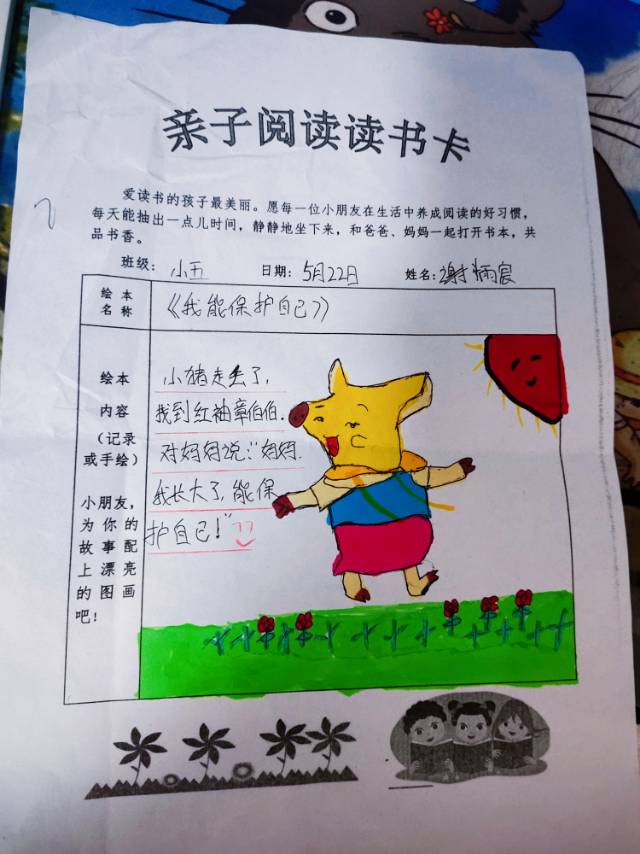 亲子阅读读书卡
爱读书的孩子最美丽。愿每一位小朋友在生活中养成阅读的好习惯，
每天能抽出一点儿时间，静静地坐下来，和爸爸、妈妈一起打开书本，共
品书香。
班级：小五 日期：5月22日 姓名：谢炳宸
绘本
名称
《我能保护自己》
绘本
内容
（记录
或手绘）
小朋友，
为你的
故事配
上漂亮
的图画
吧！
小猪走丢了，
找到红袖章伯伯.
对妈妈说：“妈妈.
我长大了，能保
护自己！”